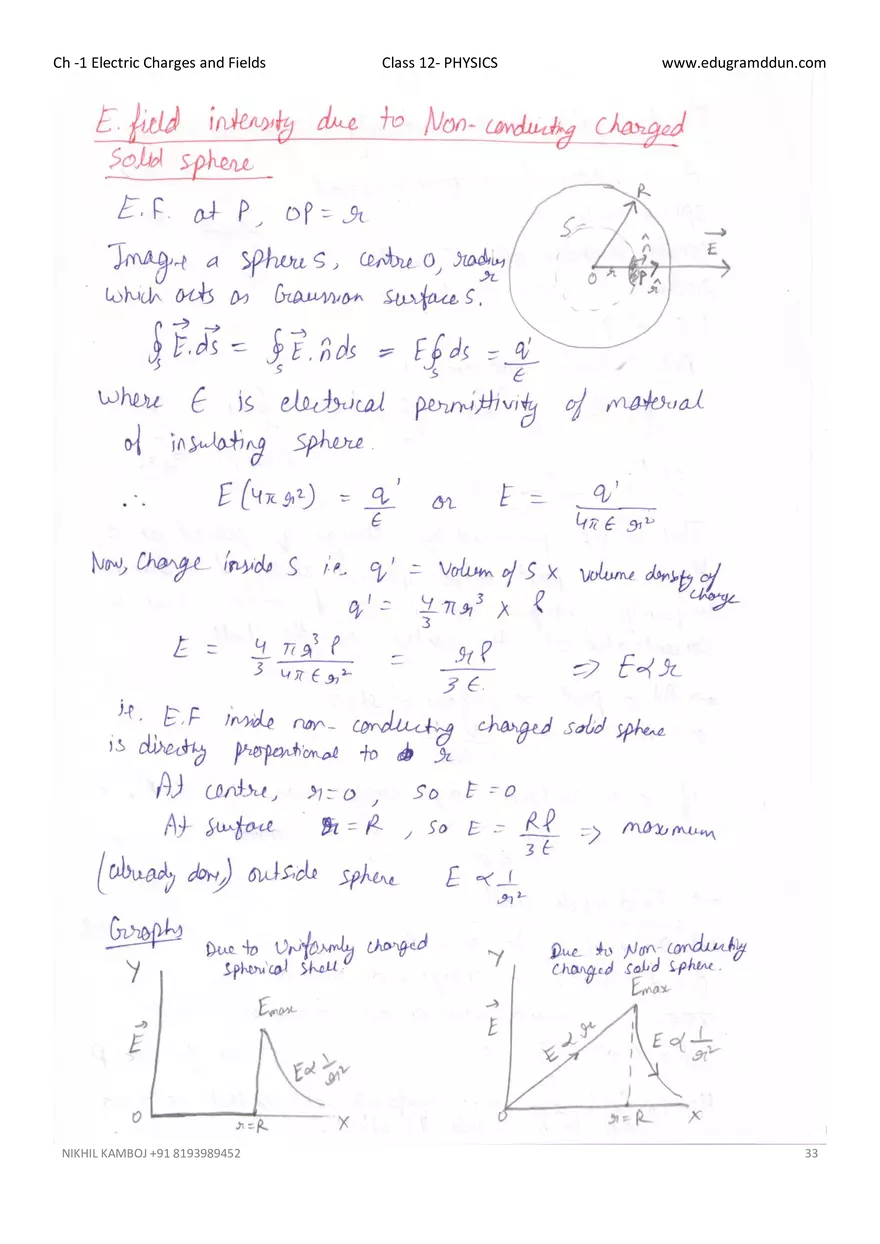 Ch -1 Electric Charges and Fields Class 12- PHYSICS www.edugramddun.com
E. field intensity due to Non-conducting Charged
Solid sphere
E.F. at P, OP = r
Imagine a sphere S, centre O, radius r
which acts as Gaussian surface S.
R
S
n̂
E⃗
O r P r̂
∮s E⃗.ds⃗ = ∮s E⃗.n̂ds = E∮s ds = q'/ϵ
where ϵ is electrical permittivity of material
of insulating sphere.
∴ E(4πr²) = q'/ϵ or E = q'/4πϵr²
Now, Charge inside S i.e. q' = Volum of S x volume density of charge
q' = 4/3 πr³ x ρ
E = 4/3 πr³ρ/4πϵr² = rρ/3ϵ. ⇒ E∝r
ie. E.F inside non-conducting charged solid sphere
is directly proportional to r
At centre, r=0, so E=0
At surface r=R, so E = Rρ/3ϵ ⇒ maximum
(already done) outside sphere E ∝ 1/r²
Graphs
Due to Uniformly charged
spherical shell.
Y
E⃗
Emax
E∝1/r²
O r=R X
Due to Non-conducting
charged solid sphere.
Y
E⃗
Emax
E∝r
E∝1/r²
O r=R X
NIKHIL KAMBOJ +91 8193989452 33